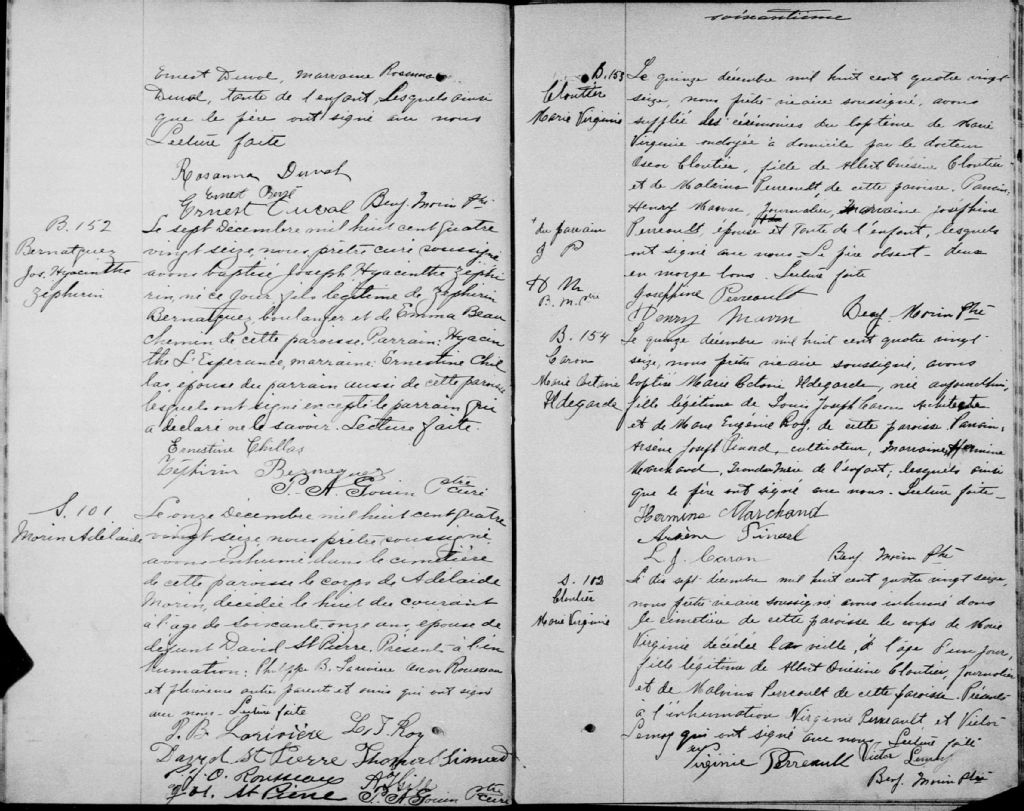 Ernest Duval, Marraine Rosanna
Duval, tante de l'enfant, lesquels ainsi
que le père ont signé avec nous
Lecture faite
Rosanna Duval
Ernest Duval Benj. Morin Ptre
B. 152
Bernatquez
Jos. Hyacinthe
Zéphirin
Le sept Décembre mil huit cent quatre
vingt seize, nous prêtre curé soussigné
avons baptisé Joseph Hyacinthe Zéphi
rin, né ce jour, fils légitime de Zéphirin
Bernatquez boulanger et de Emma Beau
chemin de cette paroisse. Parrain: Hyacin
the L'Esperance, marraine: Ernestine Chil
las, épouse du parrain aussi de cette paroisse
lesquels ont signé excepté le parrain qui
a déclaré ne le savoir. Lecture faite.
Ernestine Chillas
Zéphirin Bernaquez
P. A. Gouin Ptre curé
S. 101
Morin Adelaide
Le onze Décembre mil huit cent quatre
vingt seize, nous prêtre soussigné
avons inhumé dans le cimetière
de cette paroisse le corps de Adelaide
Morin, décédée le huit du courant
à l'age de soixante onze ans, épouse de
defunt David St Pierre. Présents à l'in
humation: Philippe B. Lariviere Oscar Rousseau
et plusieurs autres parents et amis qui ont signé
avec nous. Lecture faite
P. B. Larivière L. T. Roy
David St Pierre Thomas Simard
J. O. Rousseau
Jos. St Pierre P. A. Gouin Ptre curé
soixantième
B. 153
Cloutier
Marie Virginie
Le quinze décembre mil huit cent quatre vingt
seize, nous prêtre vicaire soussigné, avons
supplée les cérémonies du baptême de Marie
Virginie ondoyée à domicile par le docteur
Oscar Cloutier, fille de Albert Onésime Cloutier
et de Malvina Perreault, de cette paroisse. Parrain,
Henry Mavin, Journalier, Marraine Joséphine
Perreault, épouse et tante de l'enfant, lesquels
ont signé avec nous. Le père absent - deux
en marge bons. Lecture faite
du parrain
J P
H M
B. M. Ptre
Josephine Perreault
Henry Mavin Benj. Morin Ptre
B. 154
Caron
Marie Octavie
Ildegarde
Le quinze décembre mil huit cent quatre vingt
seize, nous prêtre vicaire soussigné, avons
baptisé Marie Octavie Ildegarde, née aujourd'hui,
fille légitime de Louis Joseph Caron Architecte
et de Marie Eugénie Roy, de cette paroisse. Parrain,
Arsène Joseph Pinard, cultivateur, Marraine, Hermine
Marchand, Grande Mère de l'enfant, lesquels ainsi
que le père ont signé avec nous. Lecture faite
Hermine Marchand
Arsène Pinard
L. J. Caron Benj. Morin Ptre
S. 102
Cloutier
Marie Virginie
Le dix sept décembre mil huit cent quatre vingt seize,
nous prêtre vicaire soussigné avons inhumé dans
le cimetière de cette paroisse le corps de Marie
Virginie décédée la veille, à l'âge d'un jour,
fille légitime de Albert Onésime Cloutier, Journalier
et de Malvina Perreault de cette paroisse. Présents
à l'inhumation Virginie Perreault et Victor
Lemay qui ont signé avec nous. Lecture faite
Virginie Perreault Victor Lemay
Benj. Morin Ptre